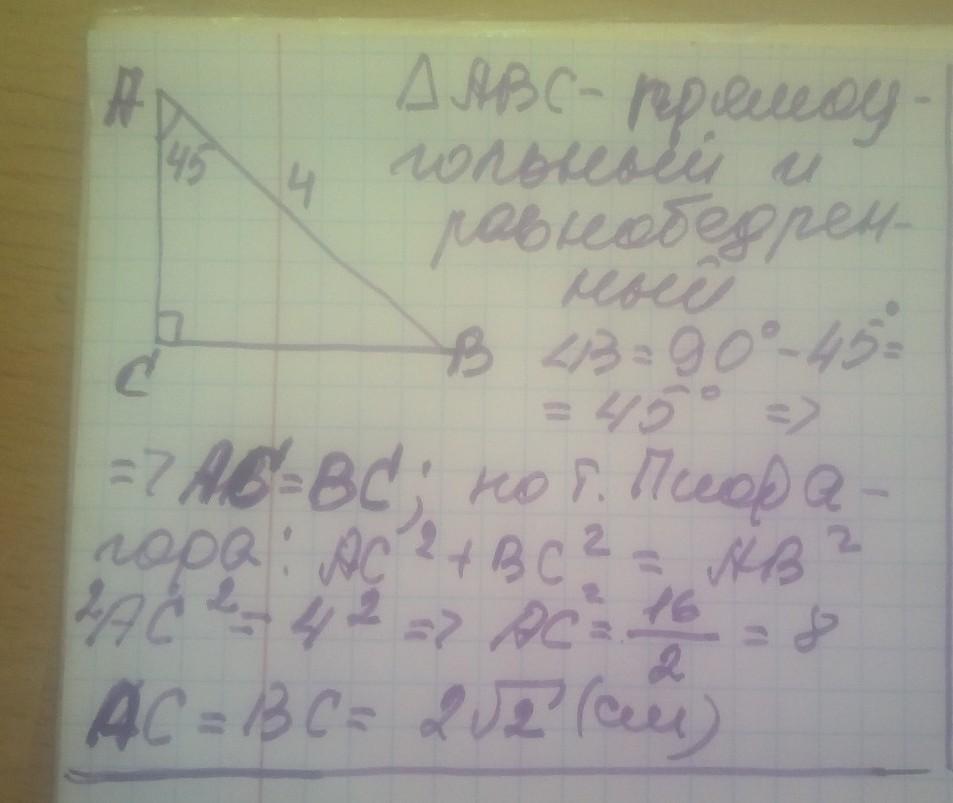 A
45
4
C
B
△ABC - прямоу-
гольный и
равнобедрен-
ный
∠B = 90° - 45° =
= 45° =>
=> AC = BC; по т. Пифа-
гора: AC² + BC² = AB²
2AC² = 4² => AC² = 16/2 = 8
AC = BC = 2√2 (см)